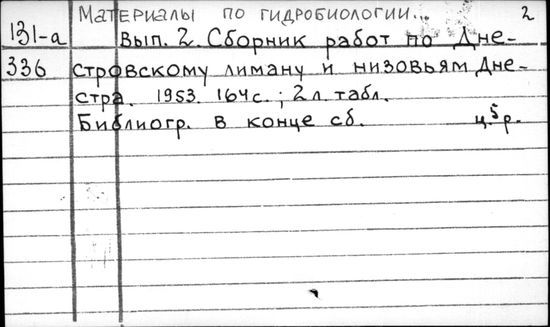 Материалы по гидробиологии... 2
131-а Вып. 2. Сборник работ по Дне-
336 стровскому лиману и низовьям Дне-
стра. 1953. 164 с.; 2 л. табл.
Библиогр. в конце сб. ц. 5 р.